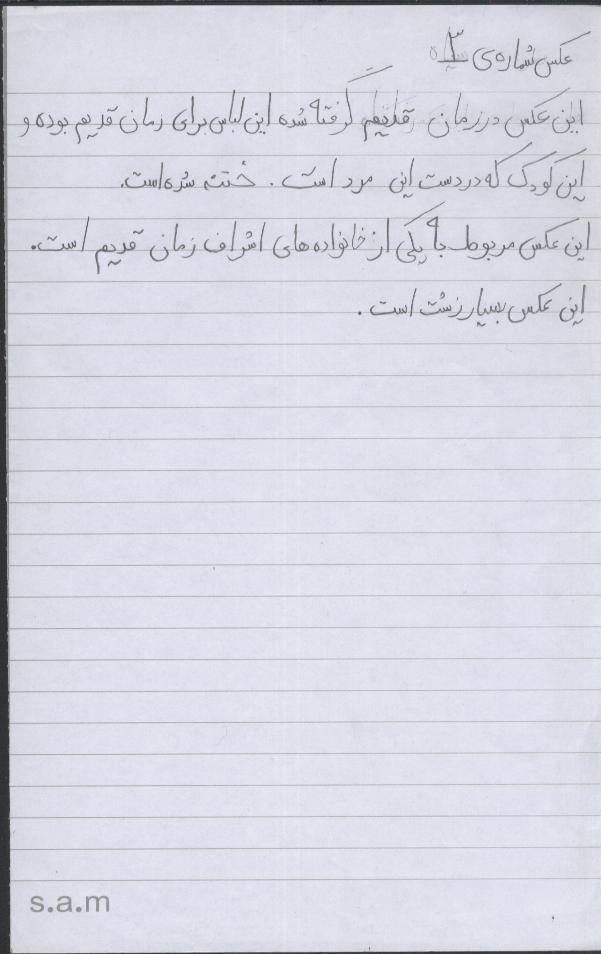 عکس شماره‌ی ۳
این عکس در زمان قدیم گرفته شده این لباس برای زمان قدیم بوده و
این کودک که در دست این مرد است. ختنه شده است.
این عکس مربوط به یکی از خانواده های اشراف زمان قدیم است.
این عکس بسیار زشت است.
s.a.m